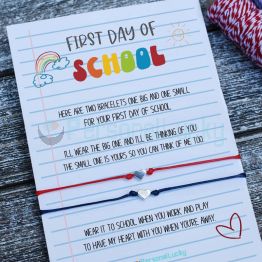 FIRST DAY OF
SCHOOL
HERE ARE TWO BRACELETS ONE BIG AND ONE SMALL
FOR YOUR FIRST DAY OF SCHOOL
I'LL WEAR THE BIG ONE AND I'LL BE THINKING OF YOU
THE SMALL ONE IS YOURS SO YOU CAN THINK OF ME TOO
WEAR IT TO SCHOOL WHEN YOU WORK AND PLAY
TO HAVE MY HEART WITH YOU WHEN YOU'RE AWAY.